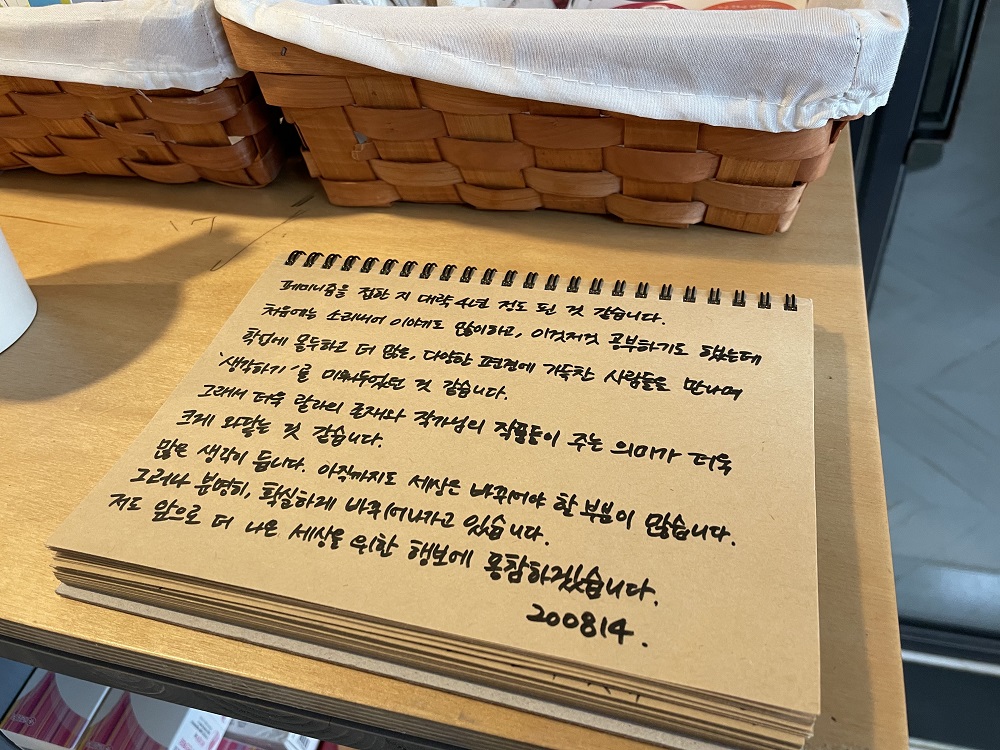 페미니즘을 접한 지 대략 4년 정도 된 것 같습니다.
처음에는 소리내어 이야기도 많이하고, 이것저것 공부하기도 했는데
학업에 몰두하고 더 많은, 다양한 편견에 가득찬 사람들을 만나며
'생각하기'를 미뤄두었던 것 같습니다.
그래서 더욱 랄라의 존재와 작가님의 작품들이 주는 의미가 더욱
크게 와닿는 것 같습니다.
많은 생각이 듭니다. 아직까지도 세상은 바뀌어야 할 부분이 많습니다.
그러나 분명히, 확실하게 바뀌어나가고 있습니다.
저도 앞으로 더 나은 세상을 위한 행보에 동참하겠습니다.
200814.